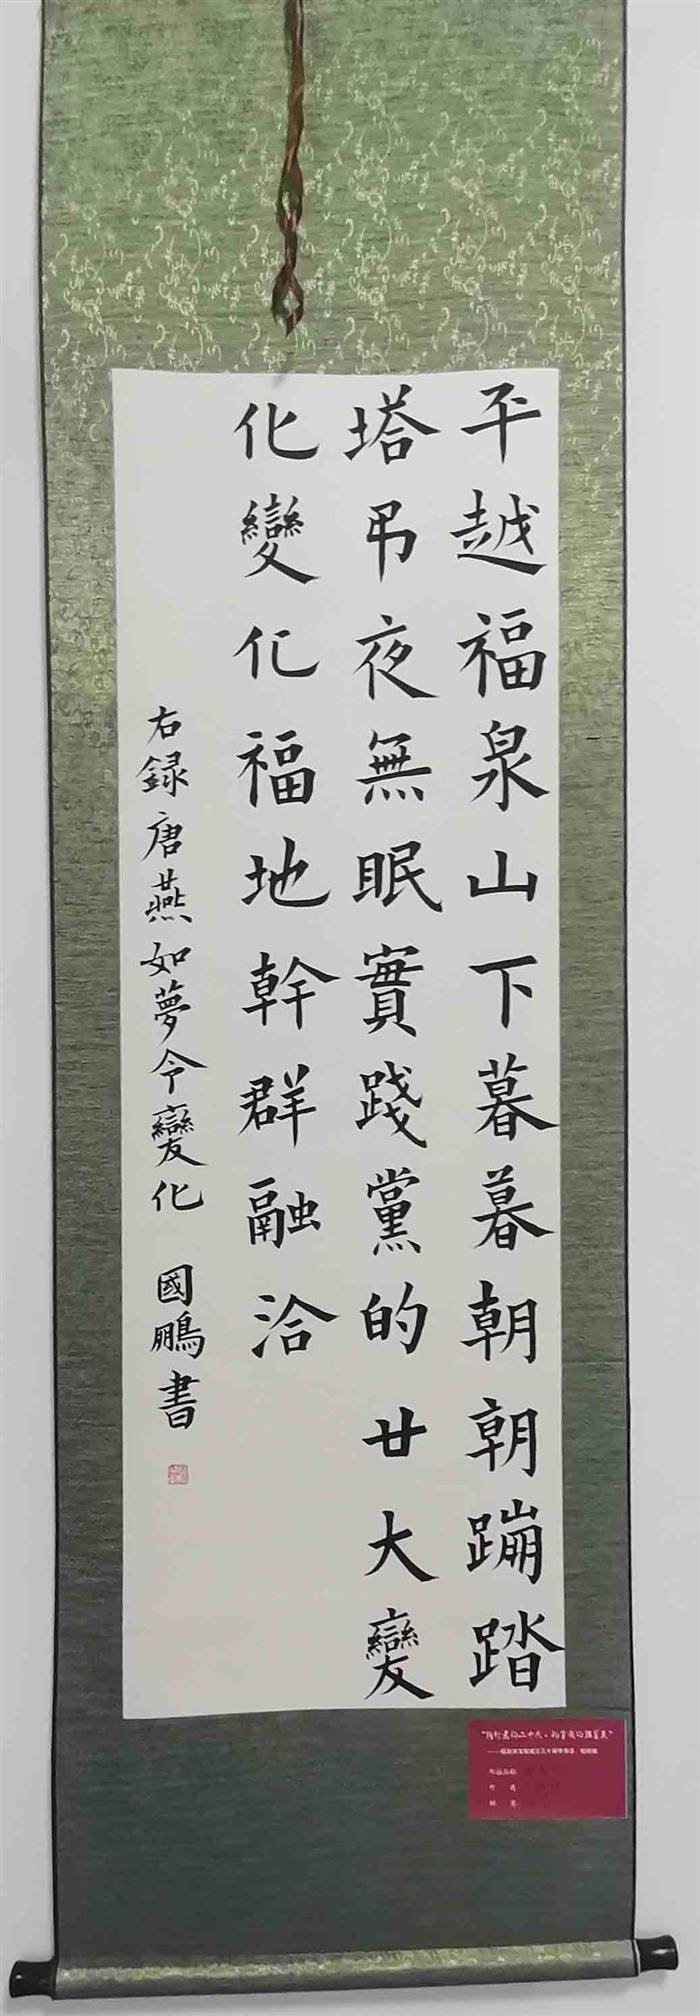 平越福泉山下暮暮朝朝蹦踏
塔吊夜無眠實踐黨的廿大變
化變化福地幹群融洽
右録唐燕如夢令變化 國鵬書